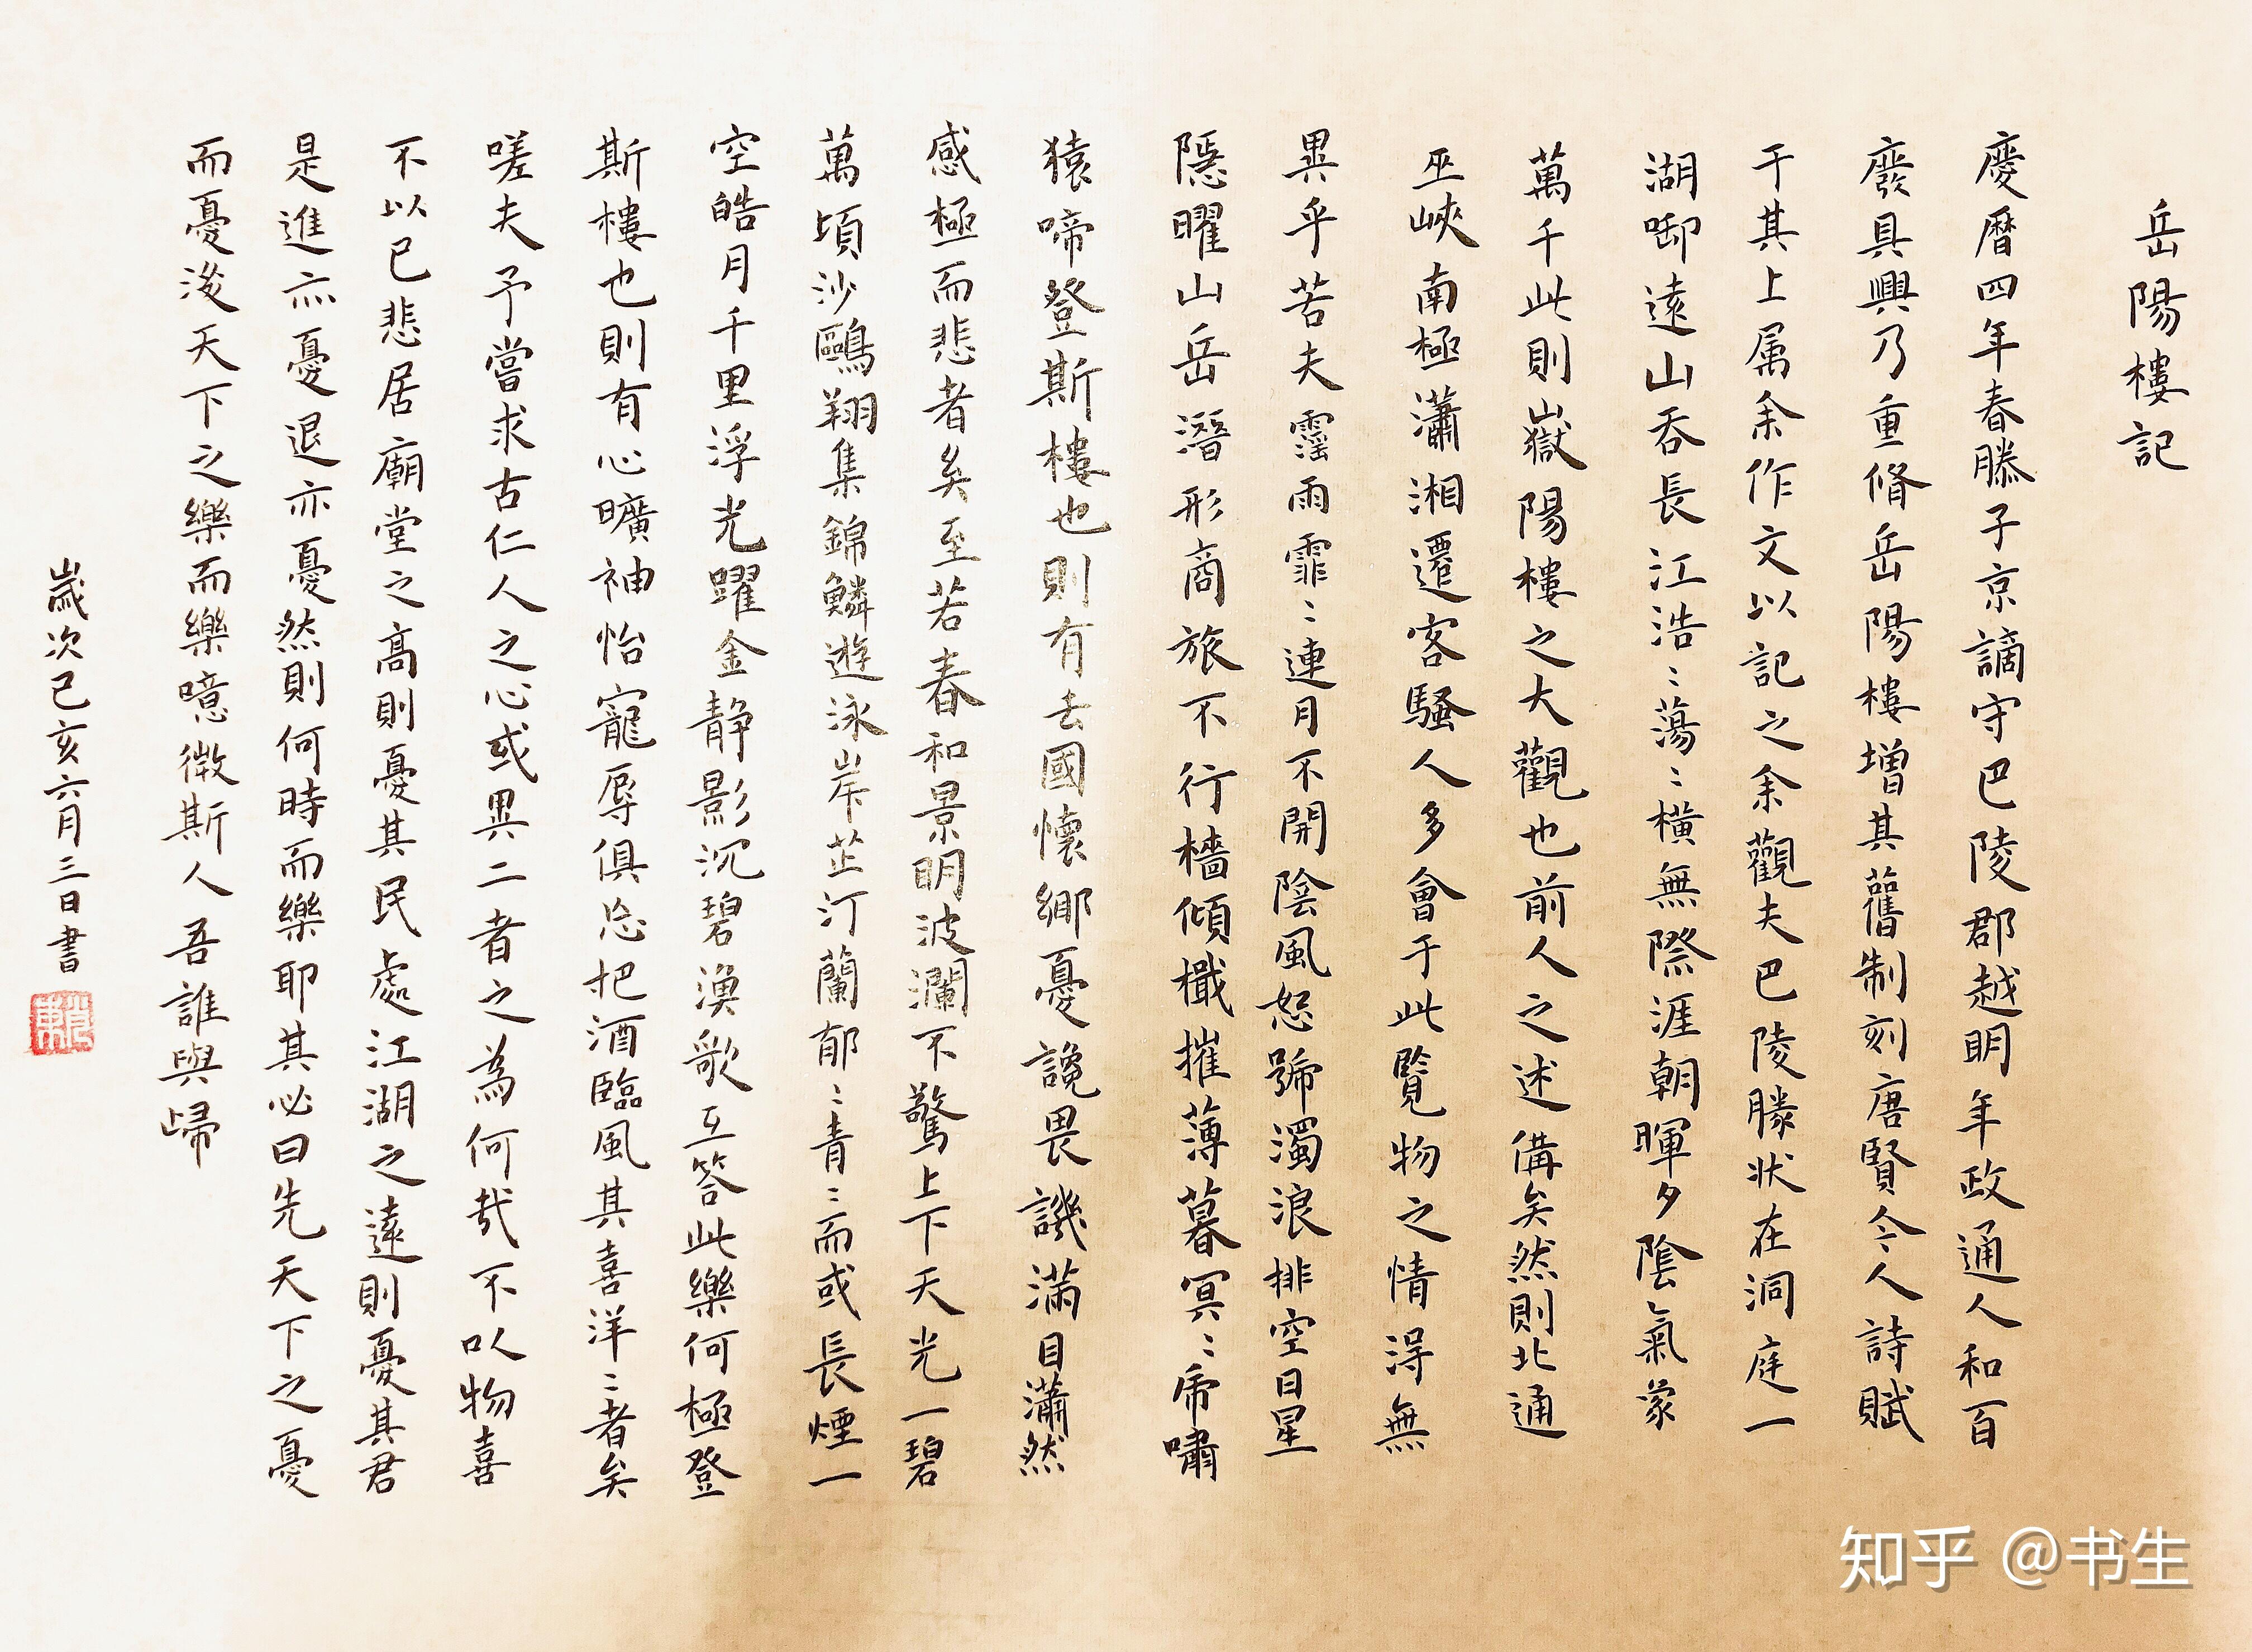 岳陽樓記
慶暦四年春滕子京謫守巴陵郡越明年政通人和百
廢具興乃重脩岳陽樓增其舊制刻唐賢今人詩賦
于其上属余作文以記之余觀夫巴陵勝状在洞庭一
湖啣遠山吞長江浩〻蕩〻橫無際涯朝暉夕陰氣象
萬千此則嶽陽樓之大觀也前人之述備矣然則北通
巫峽南極瀟湘遷客騷人多會于此覽物之情得無
異乎若夫霪雨霏〻連月不開陰風怒號濁浪排空日星
隱曜山岳潛形商旅不行檣傾檝摧薄暮冥〻虎嘯
猿啼登斯樓也則有去國懷鄉憂讒畏譏滿目瀟然
感極而悲者矣至若春和景明波瀾不驚上下天光一碧
萬頃沙鷗翔集錦鱗遊泳岸芷汀蘭郁〻青〻而或長煙一
空皓月千里浮光躍金静影沉碧漁歌互答此樂何極登
斯樓也則有心曠神怡寵辱俱忘把酒臨風其喜洋〻者矣
嗟夫予嘗求古仁人之心或異二者之為何哉不以物喜
不以己悲居廟堂之高則憂其民處江湖之遠則憂其君
是進亦憂退亦憂然則何時而樂耶其必曰先天下之憂
而憂後天下之樂而樂噫微斯人吾誰與歸
歲次己亥六月三日書
知乎 @书生